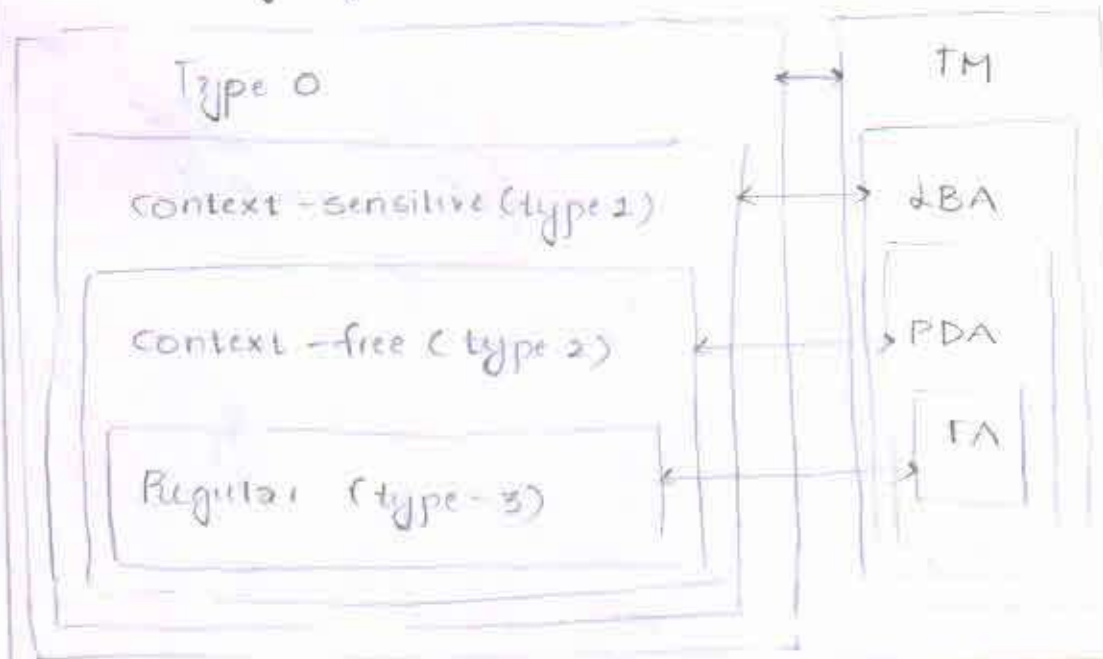 Type 0
TM
context-sensitive (type 1)
LBA
context-free (type 2)
PDA
Regular (type-3)
FA